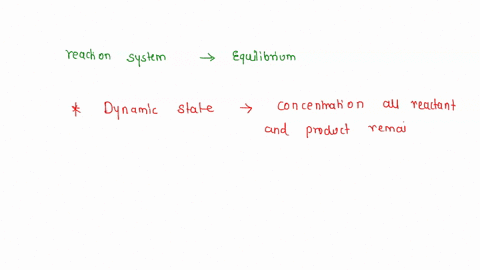 reaction system → Equilibrium
* Dynamic state → Concentration all reactant
and product remai